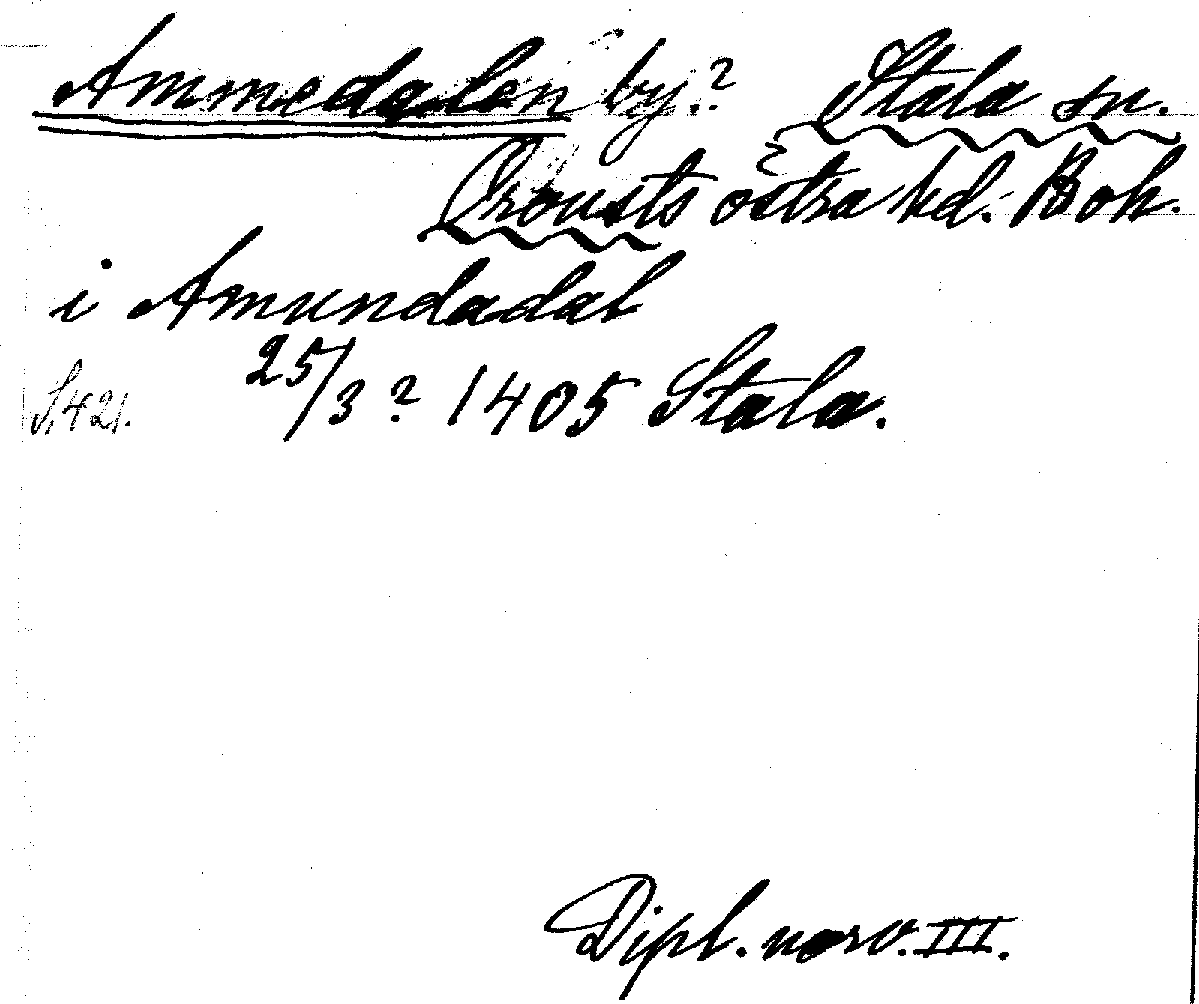 Ammedalen by? Stala sn.
Orousts östra hd. Boh.
i Amundadal
S. 421. 25/3? 1405 Stala.
Dipl. norv. III.